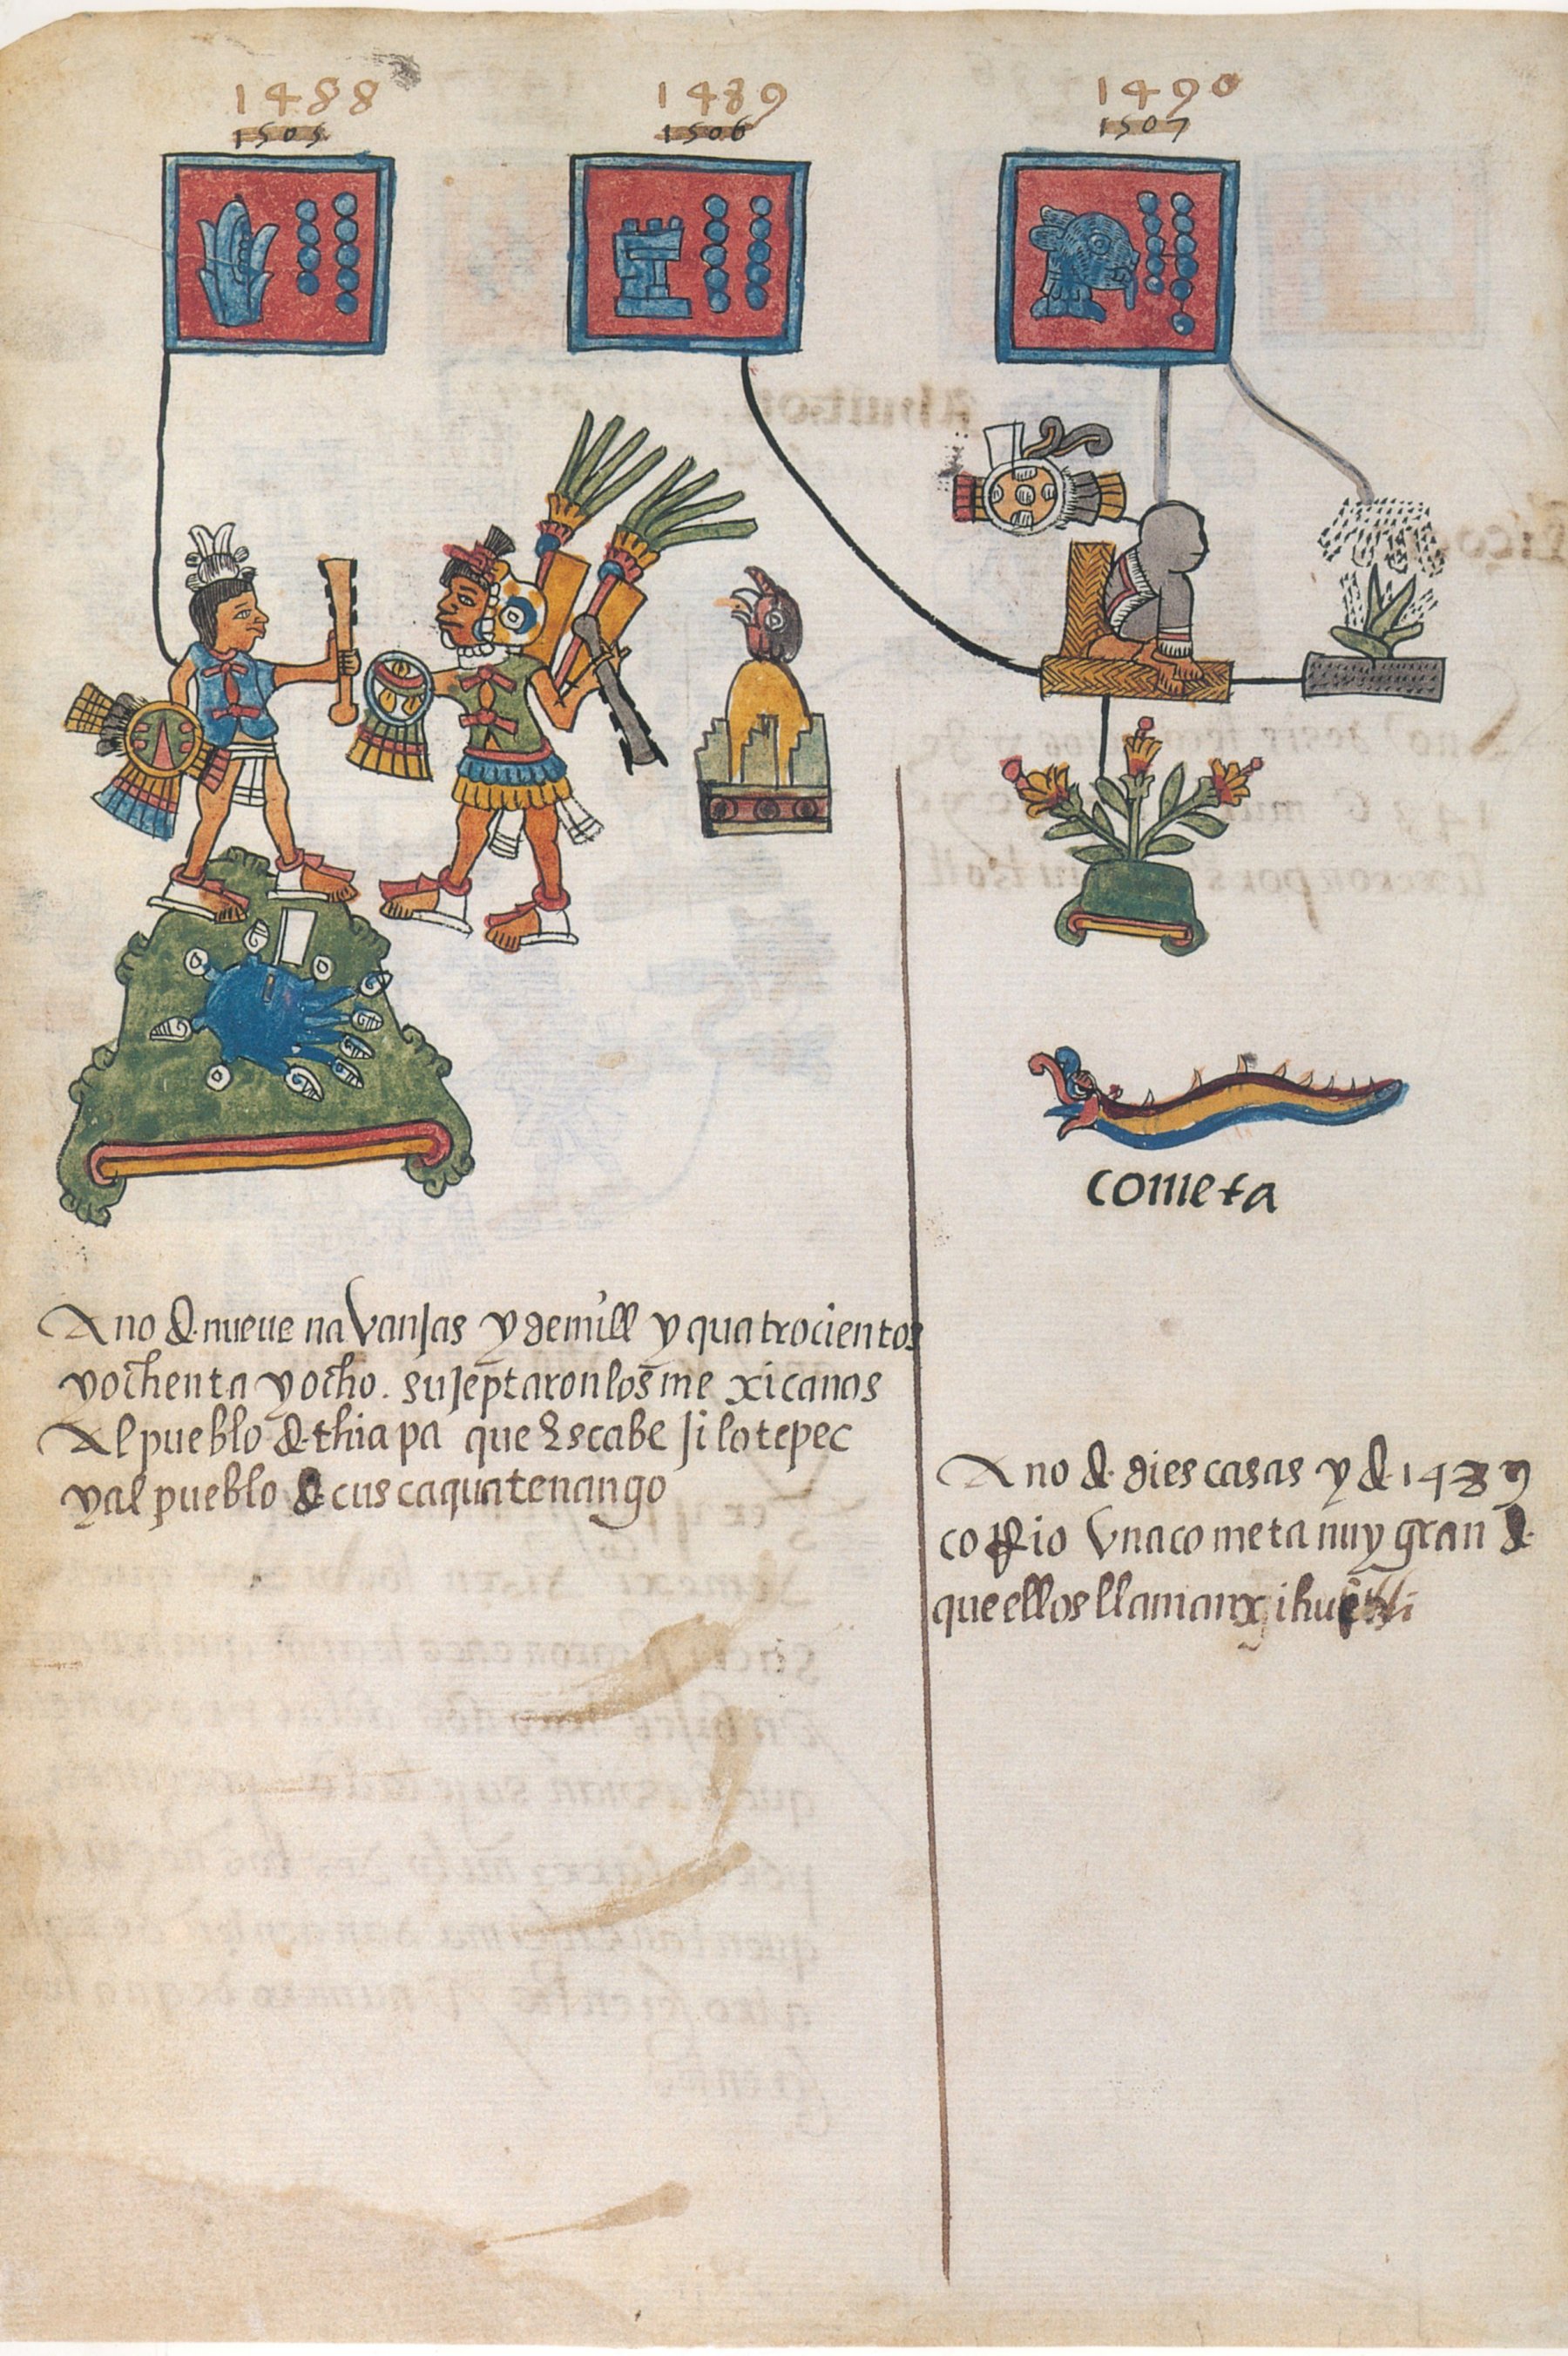 1488 1489 1490
1505 1506 1507
cometa
Ano d. nueue navanjas y demill y quatrocientos
yochenta yocho. sujeptaron los me xicanos
Al pueblo d. thiapa que Escabe jilotepec
yal pueblo d cuscaquatenango
Ano d. dies casas y d. 1489
corrio vna cometa muy gran d.
que ellos llaman xihuitli